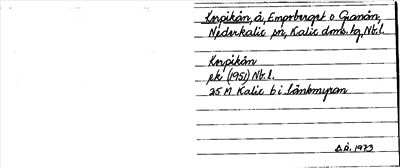 Korpikån, å, Empsberget o Granån,
Nederkalix sn, Kalix dms. tg, Nb.l.
Korpikån
ek (1951) Nb.l.
25 M Kalix b i Lånkmyran
S.Å. 1973